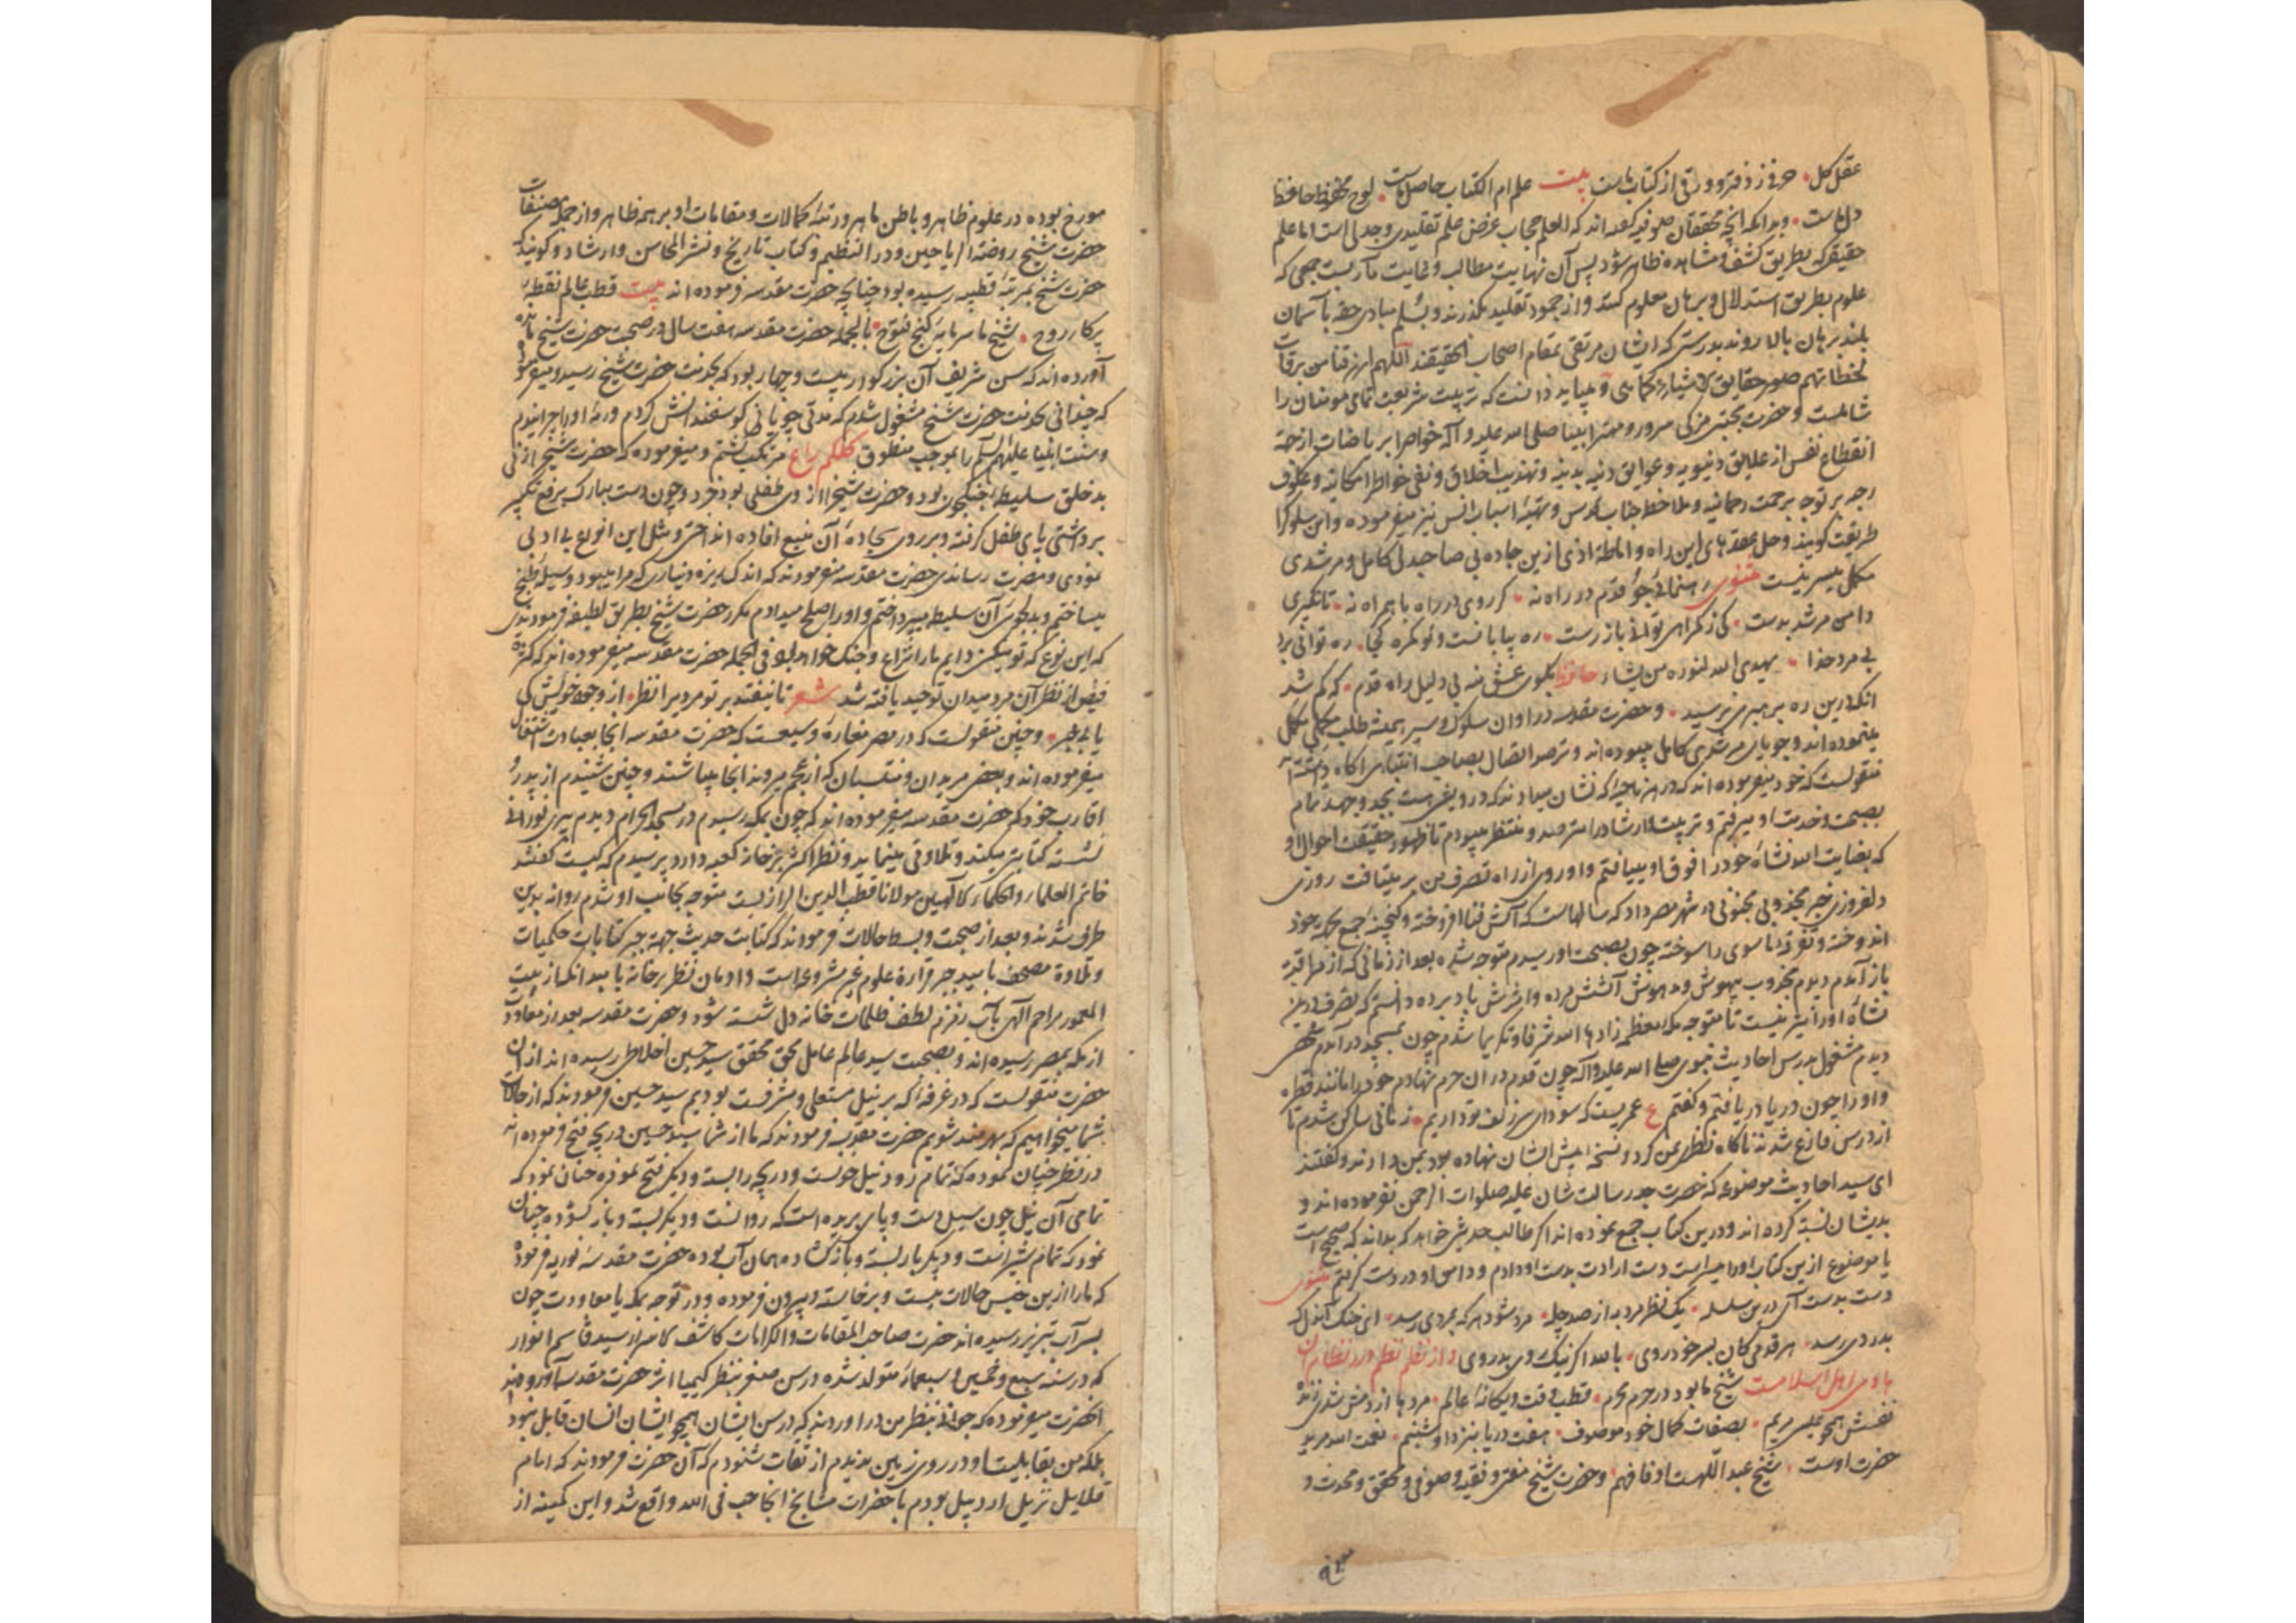 عقل کل حرفی ز دفتر و ورقی از کتاب ماست بیت علم ام الکتاب حاصل ماست لوح محفوظ حافظ
دل ماست و بدانکه آنچه محققان صوفیه گفته‌اند که العلم حجاب غرض علم تقلیدی و جدلی است اما علم
حقیقی که بطریق کشف و مشاهده ظاهر شود پس آن نهایت مطالب و غایت مآربست جمعی که
علوم بطریق استدلال و برهان معلوم کنند و از جمود تقلید بگذرند و بسلم مبادی حقه بآسمان
بلند برهان بالا روند بدرستی که ایشان مرتقی بمقام اصحاب الحقیقند اللهم ارزقنا من برقات
لحظاتهم صور حقایق الاشیاء کماهی و میباید دانست که تربیت شریعت تمامی مومنان را
شاملست و حضرت مجتبی مزکی سرور و مهتر انبیا صلی الله علیه و آله خواص را بریاضات از جهة
انقطاع نفس از علایق دنیویه و عوایق دنیه بدنیه و تهذیب اخلاق و نفی خواطر امکانیه و عکوف
بر توجه برحمت رحمانیه و ملاحظه جناب قدس و تهیهٔ اسباب انس نیز میفرموده و این سلوک را
طریقت گویند و حل عقدهای این راه و اماطهٔ اذی ازین جاده بی صاحبدل کامل و مرشدی
مکمل میسر نیست مثنوی رهنمائی جو قدم در راه نه گر روی در راه با همراه نه تا نگیری
دامن مرشد بدست کی ز گمراهی توانی باز رست ره بیابانست و تو گمره کجا ره توانی برد
بی مرد خدا یهدی الله لنوره من یشاء حافظ بکوی عشق منه بی دلیل راه قدم که گم شد
آنکه درین ره برهبری نرسید و حضرت مقدسه در اوان سلوک و سیر همیشه طلب مکملی مکمل
مینموده‌اند و جویای مرشدی کامل میبوده‌اند و مترصد اتصال بصاحب انتباهی آگاه داشته‌اند
منقولست که خود میفرموده‌اند که در هر ناحیه که نشان میدادند که درویشی هست بجد و جهد تمام
بصحبت و خدمت او میرفتم و تربیت و ارشاد را مترصد و منتظر میبودم تا ظهور حقیقت احوال او
که بعنایت الله نشاه خود را فوق او مییافتم و او روی از راه تصرف من بر میتافت روزی
دلفروزی خبر مجذوبی مجنونی در شهر مصر داد که سالهاست که آتش فنا افروخته و گنجینهٔ جمع بحر یه خود
اندوخته و تفرقهٔ ما سوی را سوخته چون بصحبت او رسیدم متوجه شده بعد از زمانی که از مراقبه
باز آمدم دیدم مجذوب بیهوش و مدهوش آتشش مرده و اثرش باد برده دانستم که تصرف درین
نشاه او را نیز نیست تا متوجه مکه معظمه زادها الله شرفا و تکریما شدم چون بمسجد در آمدم شخصی
دیدم مشغول بدرس احادیث نبوی صلی الله علیه و آله چون قدم در آن حرم نهادم خود را مانند قطره
و او را چون دریا دریافتم و گفتم ع عمریست که سودای سر زلف تو داریم زمانی ساکن شدم تا
از درس فارغ شدند ناگاه نظر بمن کرد و نسخه پیش ایشان نهاده بود بمن دادند و گفتند
ای سید احادیث موضوعه که حضرت جد رسالت شان علیه صلوات الرحمن نفرموده‌اند و
بدیشان نسبت کرده‌اند و درین کتاب جمع نموده‌اند اگر طالب حدیثی خواهد که بداند که صحیح است
یا موضوع ازین کتاب او را میسر است دست ارادت بدست او دادم و دامن او در دست گرفتم مثنوی
دست بدست آی درین سلسله یک نظر مرد به از صد چله مرد شود هر که بمردی رسد ای خنک آنوا که
بدردی رسد هر قدمی کان بسر خود روی بالله اگر نیک روی بد روی و از نظم نظم درر نظام آن
هادی اهل اسلامست شیخ ما بود در حرم محرم قطب وقت و یگانهٔ عالم مردها از دمش شدی زنده
نفسش همچو عیسی مریم بصفات کمال خود موصوف هفت دریا بنزد او شبنم نعمت الله مرید
حضرت اوست شیخ عبد اللهست او فافهم و حضرت شیخ مفتی و فقیه و صوفی و محقق و محدث و
مورخ بوده در علوم ظاهر و باطن ماهر و رتبهٔ کمالات و مقامات او بر همه ظاهر و از جمله مصنفات
حضرت شیخ روضة الریاحین و در النظیم و کتاب تاریخ و نشر المحاسن و ارشاد و گویند که
حضرت شیخ بمرتبهٔ قطبیه رسیده بود چنانچه حضرت مقدسه فرموده‌اند بیت قطب عالم نقطه
پرکار روح شیخ ما سرمایهٔ گنج فتوح بالجمله حضرت مقدسه هفت سال در صحبت حضرت شیخ مانده
آورده‌اند که سن شریف آن بزرگوار بیست و چهار بود که بخدمت حضرت شیخ رسید و میفرمود
که چنان بخدمت حضرت شیخ مشغول شدم که مدتی چوپانی گوسفندانش کردم و رمهٔ او را چرانیدم
و سنت انبیا علیهم السلام را بموجب منطوق کلکم راع مرتکب گشتم و میفرموده که حضرت شیخ را زنی
بدخلق سلیطه جنگجوی بود و حضرت شیخ را از وی طفلی بود خرد و چون دست مبارک برفع تکبیر
برداشتی پای طفل گرفته و بر روی سجادهٔ آن منبع افاده انداختی و مثل این انواع بی ادبی
نمودی و مضرت رساندی حضرت مقدسه میفرمودند که اندک ریزه دنیاری که مرا میبود وسیلهٔ طبخ
میساختم و بدلجوئی آن سلیطه میپرداختم و او را صلح میدادم مکرر حضرت شیخ بطریق لطیفه فرمودندی
که این نوع که تو میکنی دایم ما را نزاع و جنگ خواهد بود فی الجمله حضرت مقدسه میفرموده‌اند که کثرت
فیض از نظر آن مرد میدان توحید یافته شد شعر تا نیفتد بر تو مردیرا نظر از وجود خویش کی
یابی خبر و چنین منقولست که در مصر مغارهٔ وسیعست که حضرت مقدسه آنجا بعبادت اشتغال
میفرموده‌اند و بعضی مریدان و منتسبان که از عجم میروند آنجا میباشند و چنین شنیدم از پدر و
اقارب خود که حضرت مقدسه میفرموده‌اند که چون بمکه رسیدم در مسجد الحرام دیدم پیری نورانی
نشسته کتابتی میکند و تلاوتی مینماید و نظر اکثر بر خانه کعبه دارد پرسیدم که کیست گفتند
خاتم العلماء و الحکماء الالهیین مولانا قطب الدین الرازیست متوجه بجانب او شدم روانه بدین
طرف شدند و بعد از صحبت و بسط حالات فرمودند که کتابت حدیث جهة جبر کتابات حکمیات
و تلاوة مصحف بامید جبر قراءة علوم غیر مشروعه است و ادمان نظر بر خانه بامید آنکه از بیت
المعمور مراحم الهی بآب زمزم لطف ظلمات خانه دل شسته شود و حضرت مقدسه بعد از معاودت
از مکه بمصر رسیده‌اند و بصحبت سید عالم عامل محق محقق سید حسین اخلاطی رسیده‌اند از آن
حضرت منقولست که در غرفهٔ که بر نیل مستعلی و مشرفست بودیم سید حسین فرمودند که از حالات
شما میخواهیم که بهره‌مند شویم حضرت مقدسه فرمودند که ما از شما سید حسین دریچه فتح فرموده‌اند
در نظر چنان نموده که تمام رود نیل خونست و دریچه را بسته و دیگر فتح نموده چنان نمود که
تمامی آن نیل چون سیل دست و پای بریده است که روانست و دیگر بسته و باز گشوده چنان
نمود که تمام شیر است و دیگر بار بسته و باز گشاده همان آب بوده حضرت مقدسه نوریه فرموده
که ما را ازین جنس حالات نیست و برخاسته و بیرون فرموده و در توجه بمکه یا معاودت چون
بسرآب تبریز رسیده‌اند حضرت صاحب المقامات و الکرامات کاشف الاسرار سید قاسم انوار
که در سنه سبع و خمسین و سبعمائه متولد شده در سن صغر بنظر کیمیا اثر حضرت مقدسه آوردند
آنحضرت میفرموده که جوانی بنظر من در آوردند که در سن ایشان همچو ایشان انسان قابل نبود
بلکه من بقابلیت او در روی زمین ندیدم از ثقات شنودم که آن حضرت فرمودند که ایام
قلایل نزیل اردبیل بودم با حضرات مشایخ آنجا حب فی الله واقع شد و این کمینه از